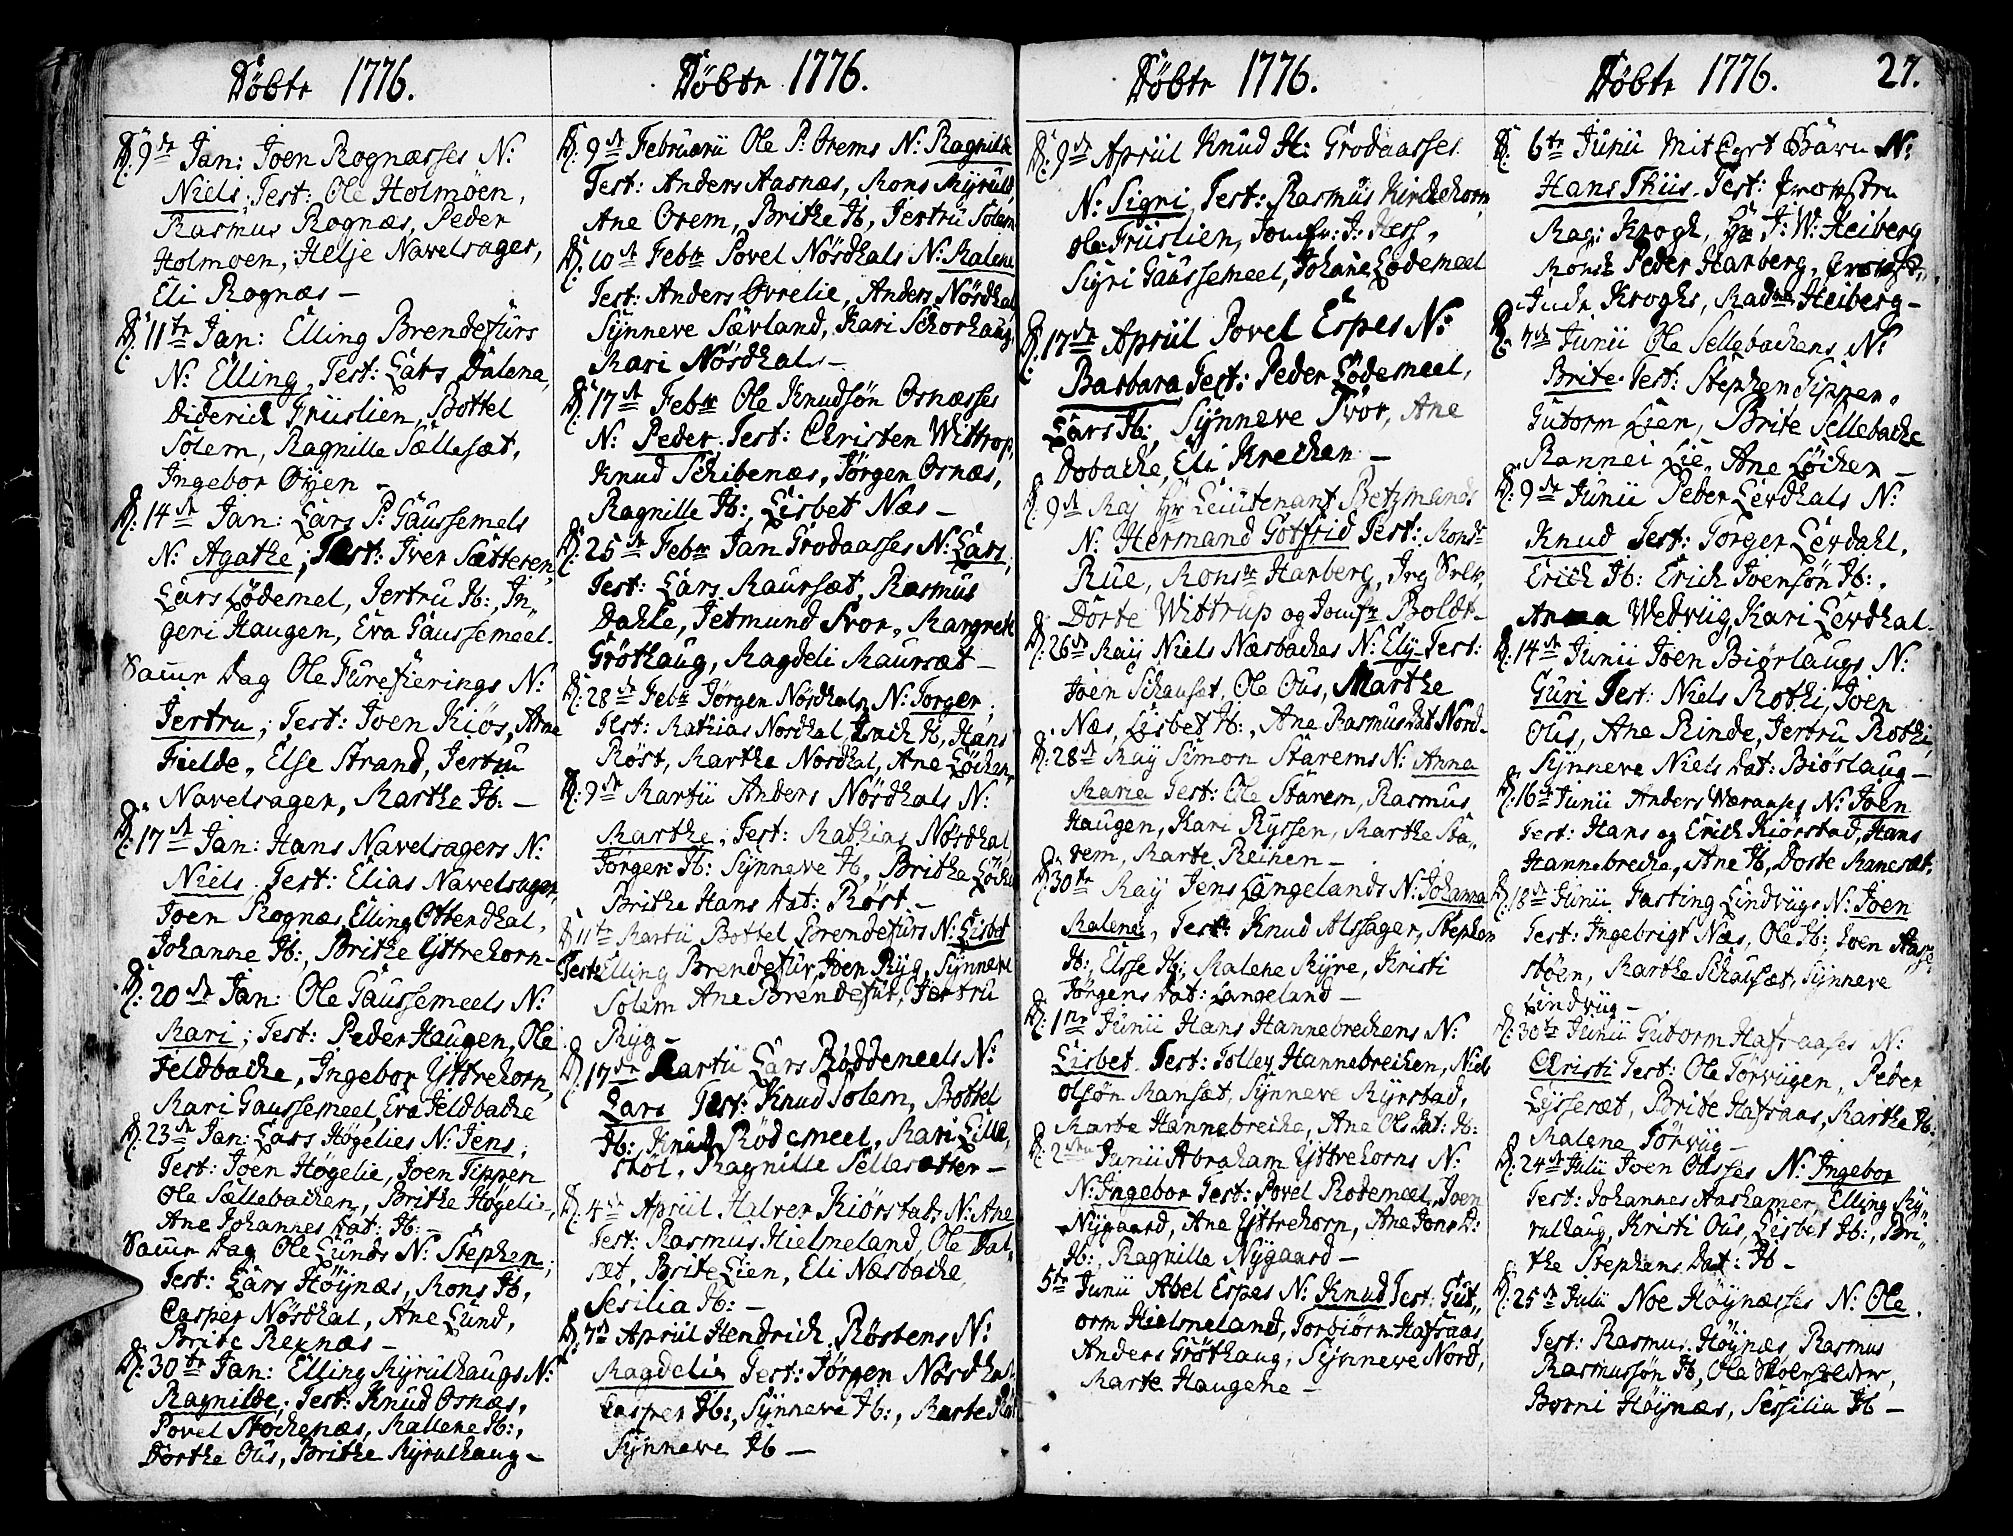 Döbte 1776.
D: 9de Jan: Joen Rognæsses N:
Niels, Test: Ole Holmöen,
Rasmus Rognæs, Peder
Holmoen, Helje Navelsager,
Eli Rognæs –
D: 11te Jan: Elling Brendefurs
N: Elling, Test: Lars Dalene,
Diderich Friislien, Bottel
Solem, Ragnille Sællesæt,
Ingebor Öyen –
D: 14de Jan: Lars P: Gaussemels
N: Agathe; Test: Iver Sætteren,
Lars Lödemel, Jertru Ib:, In„
geri Haugen, Eva Gaussemeel.
Samme Dag Ole Furefierings N:
Jertru; Test: Joen Kiös, Anne
Fielde, Else Strand, Jertru
Navelsager, Marthe Ib: –
D: 17de Jan: Hans Navelsagers N:
Niels. Test: Elias Navelsager,
Joen Rognæs, Elling Ottendhal,
Johanne Ib:, Brithe Yttrehorn –
D: 20de Jan: Ole Gaussemeels N:
Mari; Test: Peder Haugen, Ole
Feldbache, Ingebor Yttrehorn,
Mari Gaussemeel, Eva Feldbache
D: 23de Jan: Lars Högelies N: Jens;
Test: Joen Högelie, Joen Tippen
Ole Sællebachen, Brithe Högelie,
Ane Johannes Dat: Ib: –
Samme Dag Ole Lunds N: Stephen;
Test: Lars Höynæs, Mons Ib,
Casper Nördhal, Ane Lund,
Brite Rexnæs –
D: 30te Jan: Elling Myrulhaugs N:
Ragnilde. Test: Knud Osnæs,
Povel Stöckenæs, Mallene Ib:,
Dorthe Ous, Brithe Myrulhaug –
Döbte 1776.
D: 9de Februarii Ole P: Orems N: Ragnilde
Test: Anders Aasnæs, Mons Myrull,
Ane Orem, Brithe Ib, Jertru Solem
D: 10de Febr Povel Nördhals N: Malene
Test: Anders Övrelie, Anders Nördhal
Synneve Sævland, Kari Schorhaug,
Mari Nördhals –
D: 17de Febr Ole Knudsön Osnæsses
N: Peder. Test: Christen Wittrop,
Knud Schibenæs, Jörgen Osnæs,
Ragnille Ib:, Lisbet Næs –
D: 25de Febr Jan Grodaasses N: Lars,
Test: Lars Maursæt, Rasmus
Dahle, Jetmund Svor, Margrete
Gröthaug, Magdeli Maursæt –
D: 28de Febr Jörgen Nördhals N: Torger;
Test: Mathias Nordhal, Isach Ib, Hans
Röst, Marthe Nordhal, Ane Löchen
D: 9de Martii Anders Nördhals N:
Marthe, Test: Mathias Nördhal
Jörgen Ib: Synneve Ib, Brithe Löche
Brithe Hans Dat: Röst –
D 11te Martii Bottel Brendefurs N: Lisbet
Test: Elling Brendefur, Joen Ryg, Synneve
Solem Ane Brendefur, Jertru
Ryg –
D: 17de Martii Lars Röddemeels N:
Lars Test: Knud Solem, Bottel
Ib:, Knud Rödemeel, Mari Lille„
stöl, Ragnille Sellesætter –
D: 4de April Halver Kiörstads N: Ane
Test: Rasmus Hielmeland, Ole Dal„
sæt, Brite Lien, Eli Næsbache,
Sesilia Ib: –
D: 7de April Hendrich Röstens N:
Magdelis Test: Jörgen Nördhal
Casper Ib:, Synneve Ib:, Marte Röst
Synneve Ib –
Döbte 1776.
D: 9de April Knud H: Grodaasses
N: Signi, Test: Rasmus Kirchehorn,
Ole Friislien, Jomfr: J: Hess,
Syri Gaussemeel, Johane Lödemeel
D: 17de April Povel Espes N:
Barbara Test: Peder Lödemeel,
Lars Ib:, Synneve Svor, Ane
Dobache, Eli Krechen –
D: 9de Maj Hr Leiutenant Betzmands
N: Hermand Götfrid Test: Monsr
Rue, Monsr Harberg,
Dorte Wittrup og Jomfr Boldt –
D: 26de Maij Niels Næsbaches N: Ely Test:
Joen Schauset, Ole Ous, Marthe
Næs, Lisbet Ib:, Ane Rasmus Dat Nord –
D: 28de Maij Simon Starems N: Anna
Maria Test: Ole Starem, Rasmus
Haugen, Kari Ryssen, Marthe Sta„
rem, Marte Reihen –
D: 30te Maij Jens Langelands N: Johanna
Malene, Test: Knud Alssager, Stephen
Ib:, Elsse Ib:, Malene Myre, Kristi
Jörgens Dat: Langeland –
D: 1ste Junii Hans Hannebrechens N:
Lisbet. Test: Tolley Hannebreichen, Niels
Olsön Mansæt, Synneve Myrstad,
Marte Hannebreiche, Ane Ols Dat: Ib:
D: 2den Junii Abraham Yttrehorns N:
N: Ingebor Test: Povel Rodemeel, Joen
Nygaard, Ane Yttrehorn, Ane Jons D:
Ib:, Ragnille Nygaard –
5te Junii Abel Espes N: Knud Test: Gut„
orm Hielmeland, Torbiörn Hafsaas,
Anders Gröthaug, Synneve Nord,
Marte Haugene –
Döbte 1776. 27.
D: 6te Junii Mit Eget Barn N:
Hans Thiis. Test:
Mag: Krogh, Hr J: W: Heiberg
Monsr Peder Harberg,
Kroghs, Madme Heiberg –
D: 7de Junii Ole Sellebachens N:
Brite Test: Stephen Tippen,
Gutorm Lien, Brite Sellebache
Rannei Lie, Ane Löchen –
D: 9de Junii Peder Lerdhals N:
Knud Test: Torger Lerdahl,
Erich Ib: Erich Joensön Ib:,
Anna Wedvug, Kari Lerdhal –
D: 14de Junii Joen Biörlaugs N:
Guri Test: Niels Rothi, Joen
Ous, Ane Rinde, Jertru Rothi,
Synneve Niels Dat: Biörlaug –
D: 16de Junii Anders Weraases N: Joen
Test: Hans og Erich Kiörstad, Hans
Hannebreche, Ane Ib, Dorte Manesæt.
D: 18de Junii Fasting Lindvigs N: Joen
Test: Ingebrigt Næs, Ole Ib:, Joen Aasse„
stöen, Marthe Schausæt, Synneve
Lindvug –
D: 30te Junii Gutorm Hafsaases N:
Christi Test: Ole Törvugen, Peder
Lysseræt, Brite Hafsaas, Marthe Ib:
Malene Törvug –
D: 24de Julii Joen Ousses N: Ingebor
Test: Johannes Aashamer, Elling My„
rulhaug, Kristi Ous, Lisbet Ib:, Bri„
the Stephens Dat: Ib –
D: 25de Julii Noe Höynæsses N: Ole.
Test: Rasmus Höynæs, Rasmus
Rasmussön Ib, Ole
Borni Höynæs, Sessilia Ib –